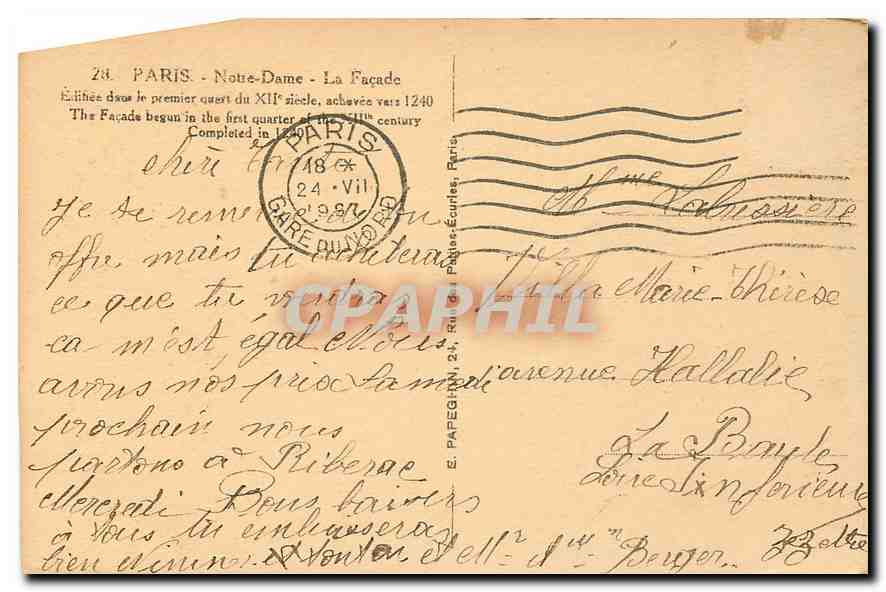 28. PARIS. - Notre-Dame - La Façade
Édifiée dans le premier quart du XIIe siècle, achevée vers 1240
The Façade begun in the first quarter of the XIIth century
Completed in 1240
PARIS
18 *
24 · VII
GARE DU NORD
E. PAPEGHIN, 24, Rue des Petites-Écuries, Paris.
CPAPHIL
Chère
Je te remercie
offre mais tu achèteras
ce que tu voudras
ça m'est égal Nous
avons nos prix Samedi
prochain nous
partons à Riberac
Mercredi Bons baisers
à tous tu embrasseras
bien et tonton et Mr et Mme Berger
Mme
Villa Marie-Thérèse
avenue Hallalie
La Baule
Loire Inférieure